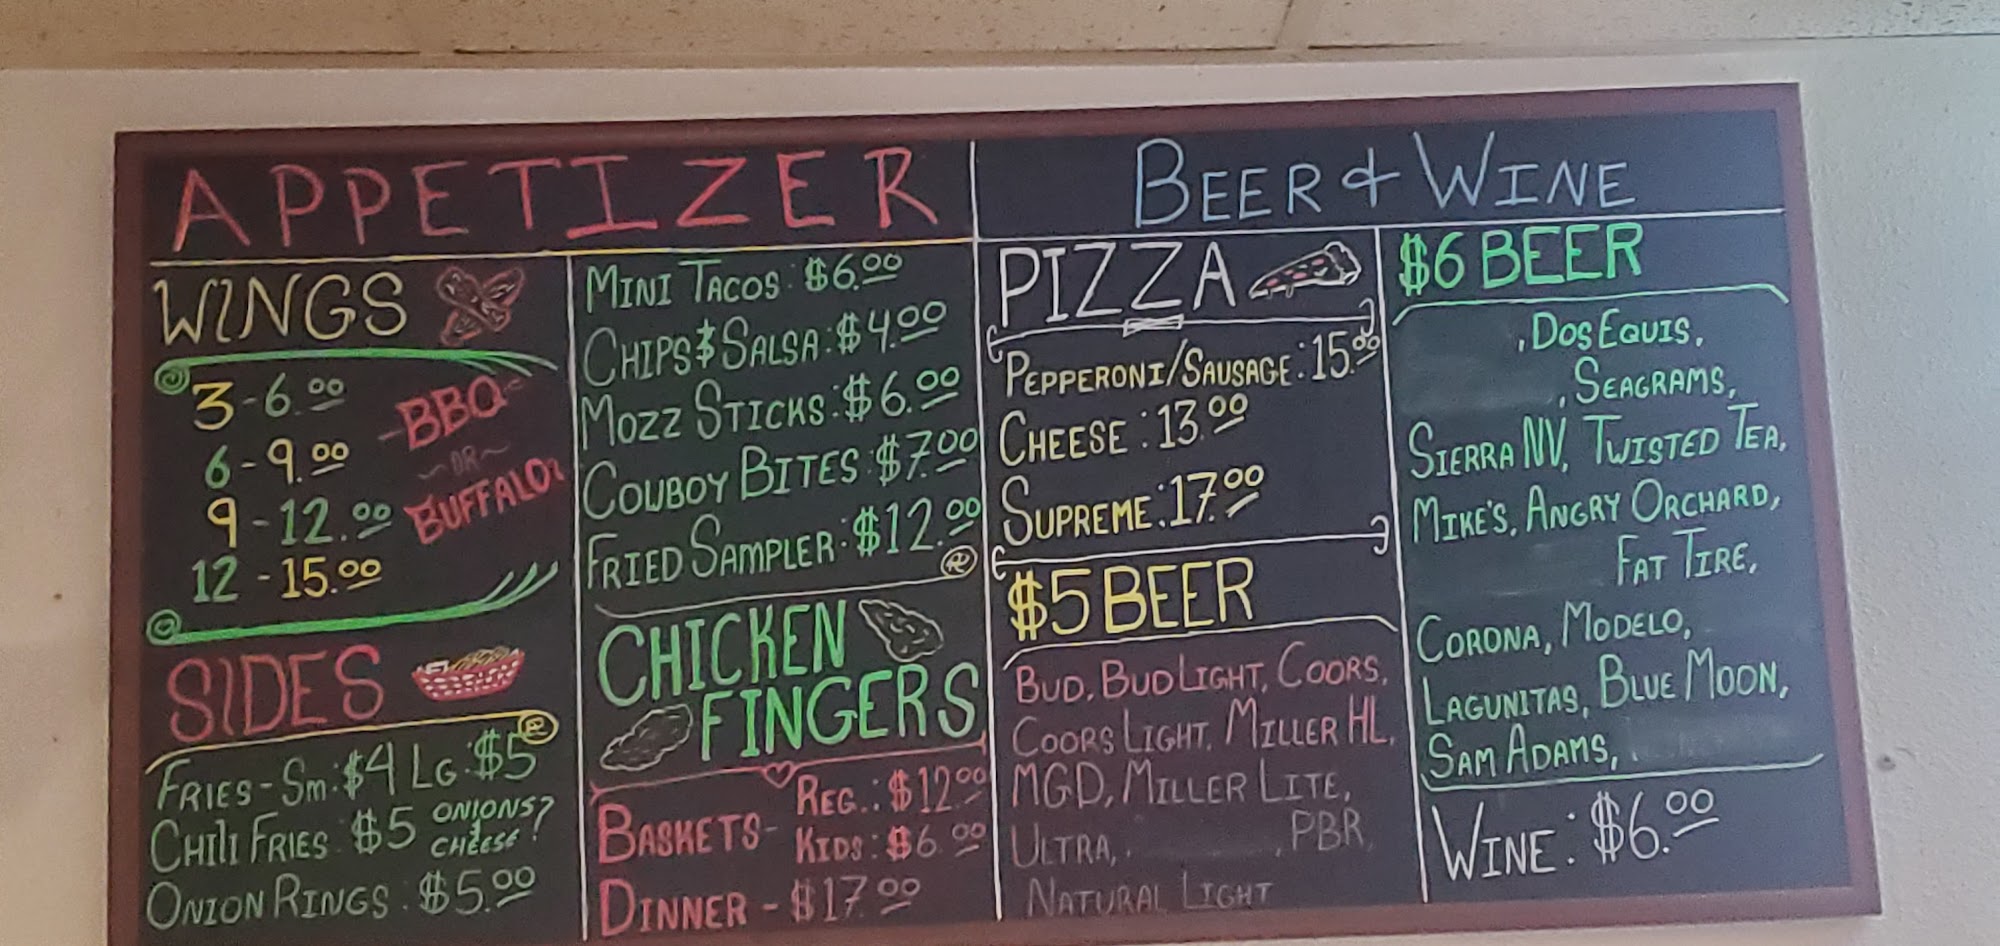 APPETIZER
WINGS
3-6.00
6-9.00
9-12.00
12-15.00
-BBQ-
~OR~
BUFFALO
SIDES
FRIES-SM:$4 LG:$5
CHILI FRIES:$5 ONIONS? & CHEESE?
ONION RINGS:$5.00
MINI TACOS:$6.00
CHIPS & SALSA:$4.00
MOZZ STICKS:$6.00
COWBOY BITES:$7.00
FRIED SAMPLER:$12.00
CHICKEN
FINGERS
BASKETS- REG.:$12.00
KIDS:$6.00
DINNER-$17.00
BEER & WINE
PIZZA
PEPPERONI/SAUSAGE:15.00
CHEESE:13.00
SUPREME:17.00
$5 BEER
BUD, BUD LIGHT, COORS,
COORS LIGHT, MILLER HL,
MGD, MILLER LITE,
ULTRA, , PBR,
NATURAL LIGHT
$6 BEER
, DOS EQUIS,
, SEAGRAMS,
SIERRA NV, TWISTED TEA,
MIKE'S, ANGRY ORCHARD,
FAT TIRE,
CORONA, MODELO,
LAGUNITAS, BLUE MOON,
SAM ADAMS,
WINE:$6.00